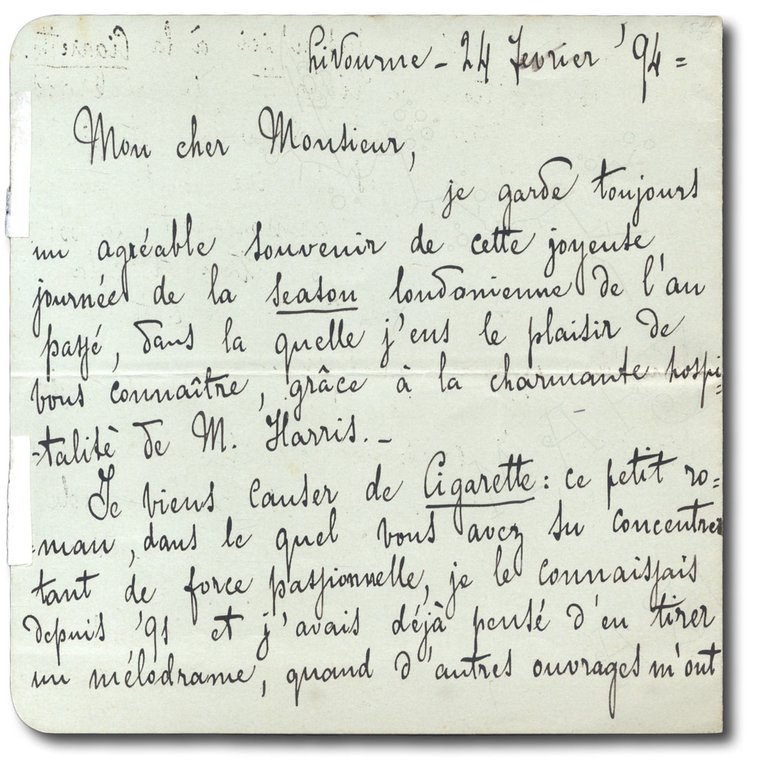 Livourne - 24 fevrier '94 =
Mon cher Monsieur,
je garde toujours
un agréable souvenir de cette joyeuse
journée de la season londonienne de l'an
passé, dans la quelle j'eus le plaisir de
vous connaître, grâce à la charmante hospi=
-talité de M. Harris. _
Je viens causer de Cigarette : ce petit ro=
=man, dans le quel vous avez su concentrer
tant de force passionnelle, je le connaissais
depuis '91 et j'avais déjà pensé d'en tirer
un mélodrame, quand d'autres ouvrages m'ont